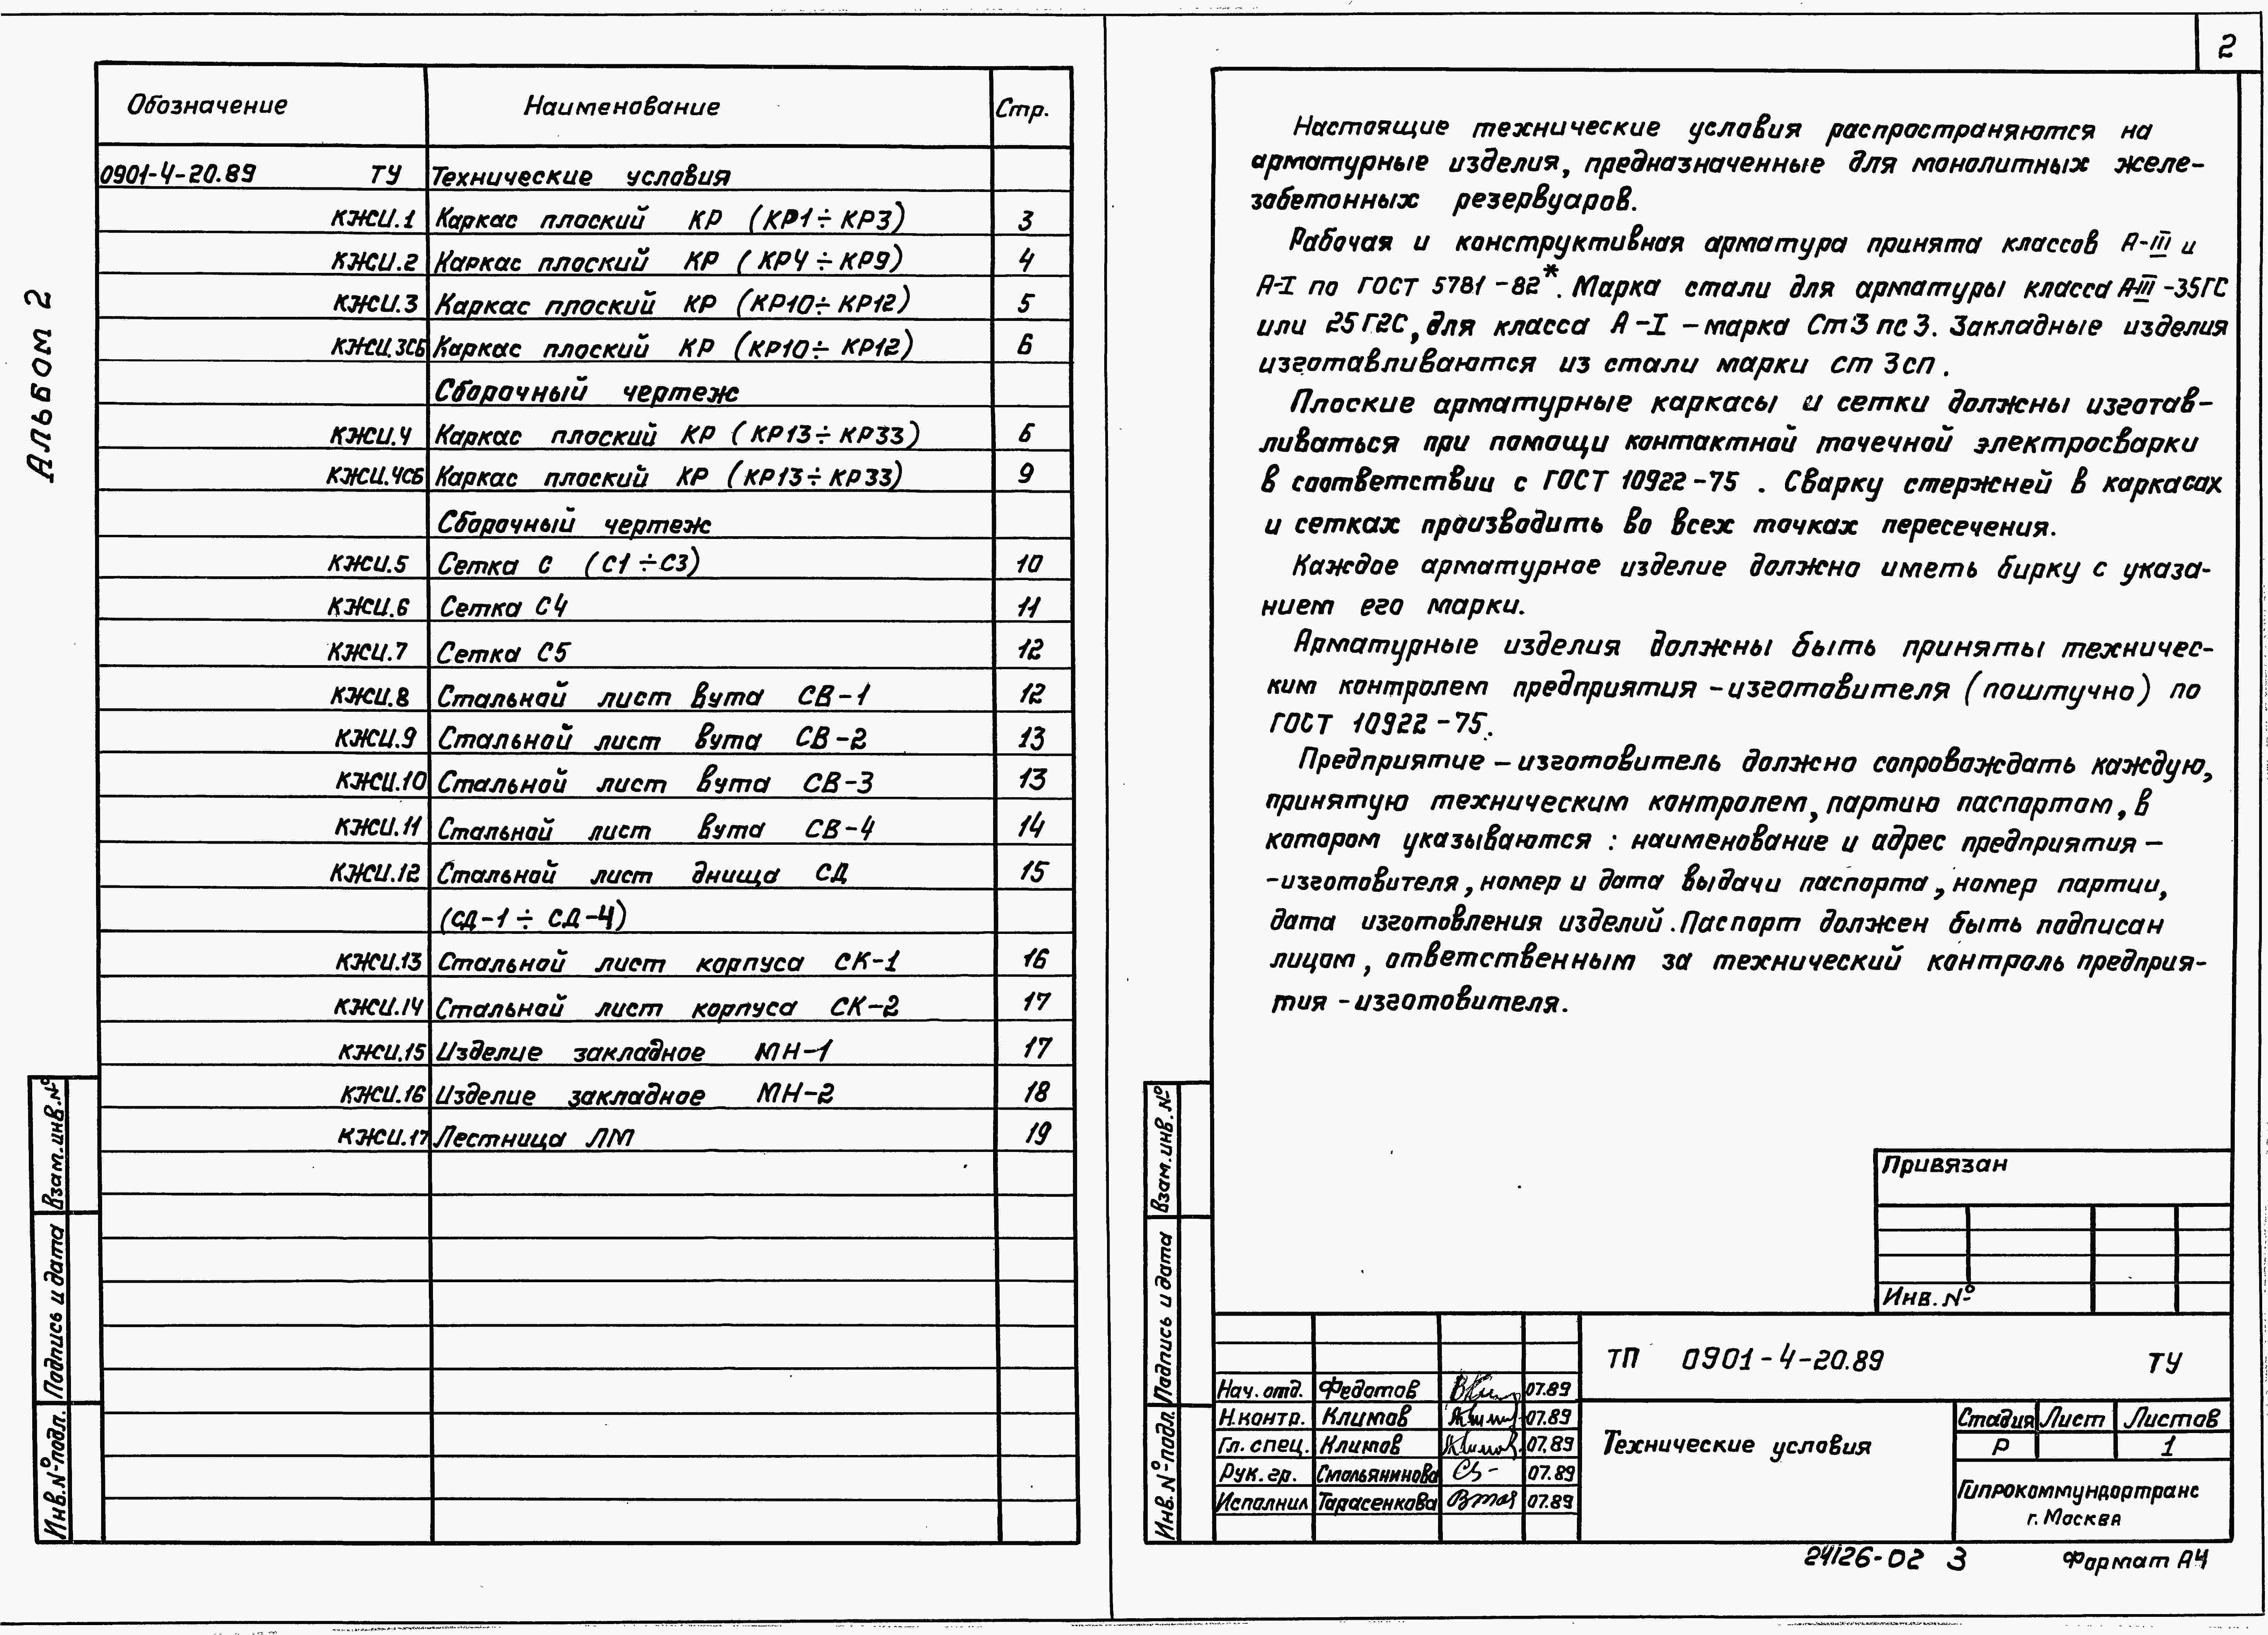 Альбом 2
Обозначение Наименование Стр.
0901-4-20.89 ТУ Технические условия
КЖИ.1 Каркас плоский КР (КР1÷КР3) 3
КЖИ.2 Каркас плоский КР (КР4÷КР9) 4
КЖИ.3 Каркас плоский КР (КР10÷КР12) 5
КЖИ.3СБ Каркас плоский КР (КР10÷КР12) 6
Сборочный чертеж
КЖИ.4 Каркас плоский КР (КР13÷КР33) 6
КЖИ.4СБ Каркас плоский КР (КР13÷КР33) 9
Сборочный чертеж
КЖИ.5 Сетка С (С1÷С3) 10
КЖИ.6 Сетка С4 11
КЖИ.7 Сетка С5 12
КЖИ.8 Стальной лист вута СВ-1 12
КЖИ.9 Стальной лист вута СВ-2 13
КЖИ.10 Стальной лист вута СВ-3 13
КЖИ.11 Стальной лист вута СВ-4 14
КЖИ.12 Стальной лист днища СД 15
(СД-1÷СД-4)
КЖИ.13 Стальной лист корпуса СК-1 16
КЖИ.14 Стальной лист корпуса СК-2 17
КЖИ.15 Изделие закладное МН-1 17
КЖИ.16 Изделие закладное МН-2 18
КЖИ.17 Лестница ЛМ 19
Взам.инв.№
Подпись и дата
Инв.№подл.
2
Настоящие технические условия распространяются на
арматурные изделия, предназначенные для монолитных желе-
забетонных резервуаров.
Рабочая и конструктивная арматура принята классов А-III и
А-I по ГОСТ 5781-82*. Марка стали для арматуры класса А-III-35ГС
или 25Г2С, для класса А-I - марка Ст3пс3. Закладные изделия
изготавливаются из стали марки ст 3сп.
Плоские арматурные каркасы и сетки должны изготав-
ливаться при помощи контактной точечной электросварки
в соответствии с ГОСТ 10922-75. Сварку стержней в каркасах
и сетках производить во всех точках пересечения.
Каждое арматурное изделие должно иметь бирку с указа-
нием его марки.
Арматурные изделия должны быть приняты техничес-
ким контролем предприятия-изготовителя (поштучно) по
ГОСТ 10922-75.
Предприятие - изготовитель должно сопровождать каждую,
принятую техническим контролем, партию паспортом, в
котором указываются: наименование и адрес предприятия -
-изготовителя, номер и дата выдачи паспорта, номер партии,
дата изготовления изделий. Паспорт должен быть подписан
лицом, ответственным за технический контроль предприя-
тия-изготовителя.
Взам.инв.№
Подпись и дата
Инв.№подл.
Привязан
Инв.№
ТП 0901-4-20.89 ТУ
Нач.отд. Федотов 07.89
Н.контр. Климов 07.89
Гл.спец. Климов 07.89
Рук.гр. Смольянинова 07.89
Исполнил Тарасенкова 07.89
Технические условия
Стадия Лист Листов
Р 1
Гипрокоммундортранс
г. Москва
24126-02 3 Формат А4